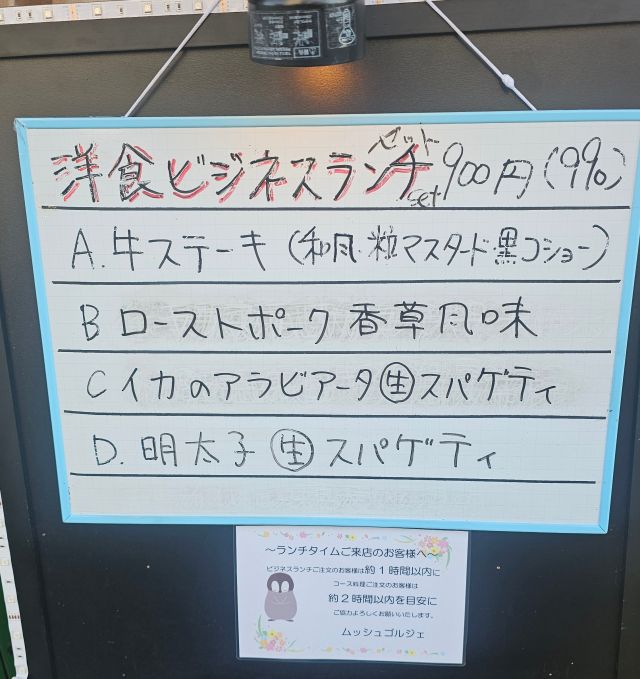 洋食ビジネスランチセットset 900円(990)
A.牛ステーキ(和風・粒マスタード黒コショー)
B ローストポーク 香草風味
C イカのアラビアータ㊤スパゲティ
D.明太子 生 スパゲティ
～ランチタイムご来店のお客様へ～
ビジネスランチご注文のお客様は約1時間以内に
コース料理ご注文のお客様は
約2時間以内を目安に
ご協力よろしくお願いいたします。
ムッシュゴルジェ